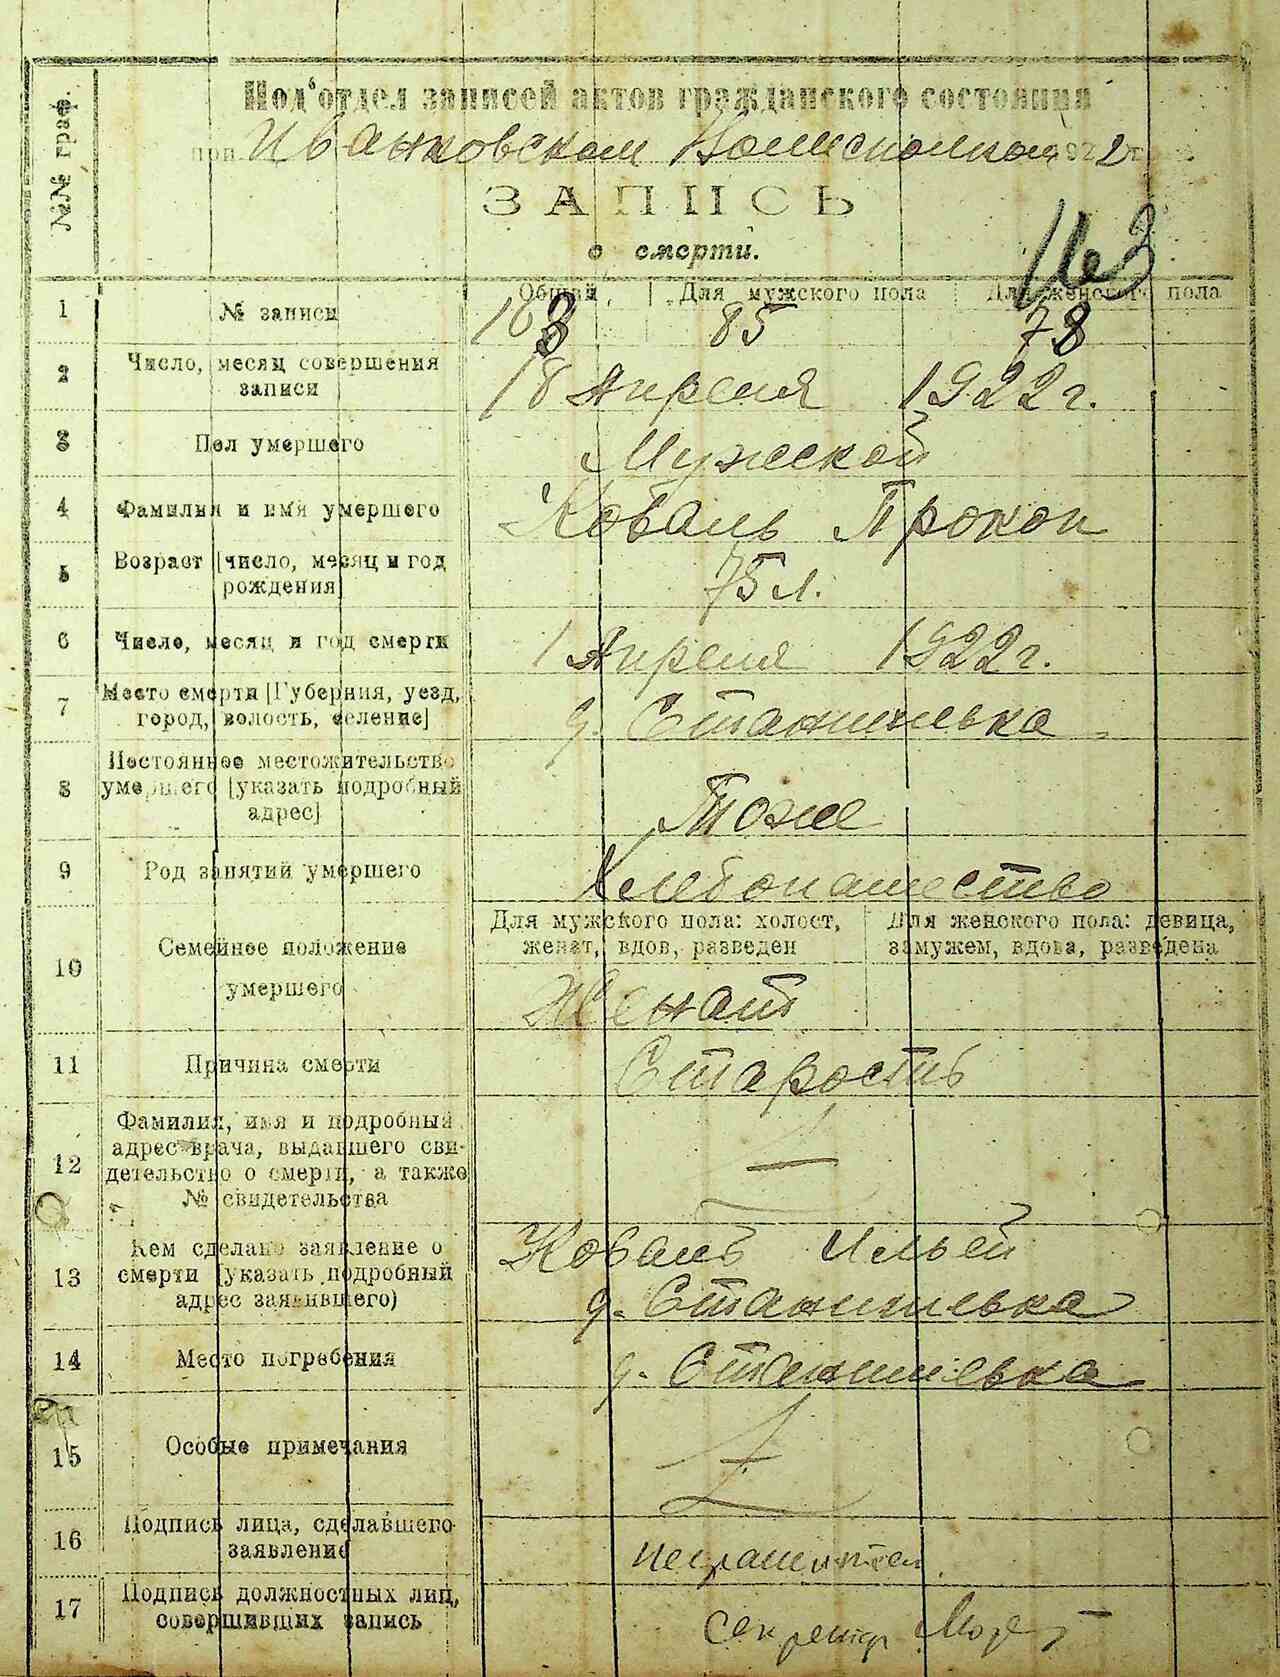 №№ граф.
Под'отдел записей актов гражданского состояния
при Иванковском Волисполкоме 1922 г.
ЗАПИСЬ
о смерти.
163
Общий, Для мужского пола Для женского пола
1 № записи 163 85 78
2 Число, месяц совершения записи 18 Апреля 1922 г.
3 Пол умершего Мужской
4 Фамилия и имя умершего Коваль Прокоп
5 Возраст [число, месяц и год рождения] 75 л.
6 Число, месяц и год смерти 1 Апреля 1922 г.
7 Место смерти [Губерния, уезд, город, волость, селение] д. Станишевка
8 Постоянное местожительство умершего [указать подробный адрес] Тоже
9 Род занятий умершего Хлебопашество
10 Семейное положение умершего
Для мужского пола: холост, женат, вдов, разведен
Для женского пола: девица, замужем, вдова, разведена
Женат
11 Причина смерти Старость
12 Фамилия, имя и подробный адрес врача, выдавшего свидетельство о смерти, а также № свидетельства —
13 Кем сделано заявление о смерти [указать подробный адрес заявившего) Коваль Ильей
д. Станишевка
14 Место погребения д. Станишевка
15 Особые примечания
16 Подпись лица, сделавшего заявление неграмотен
17 Подпись должностных лиц, совершивших запись секретар